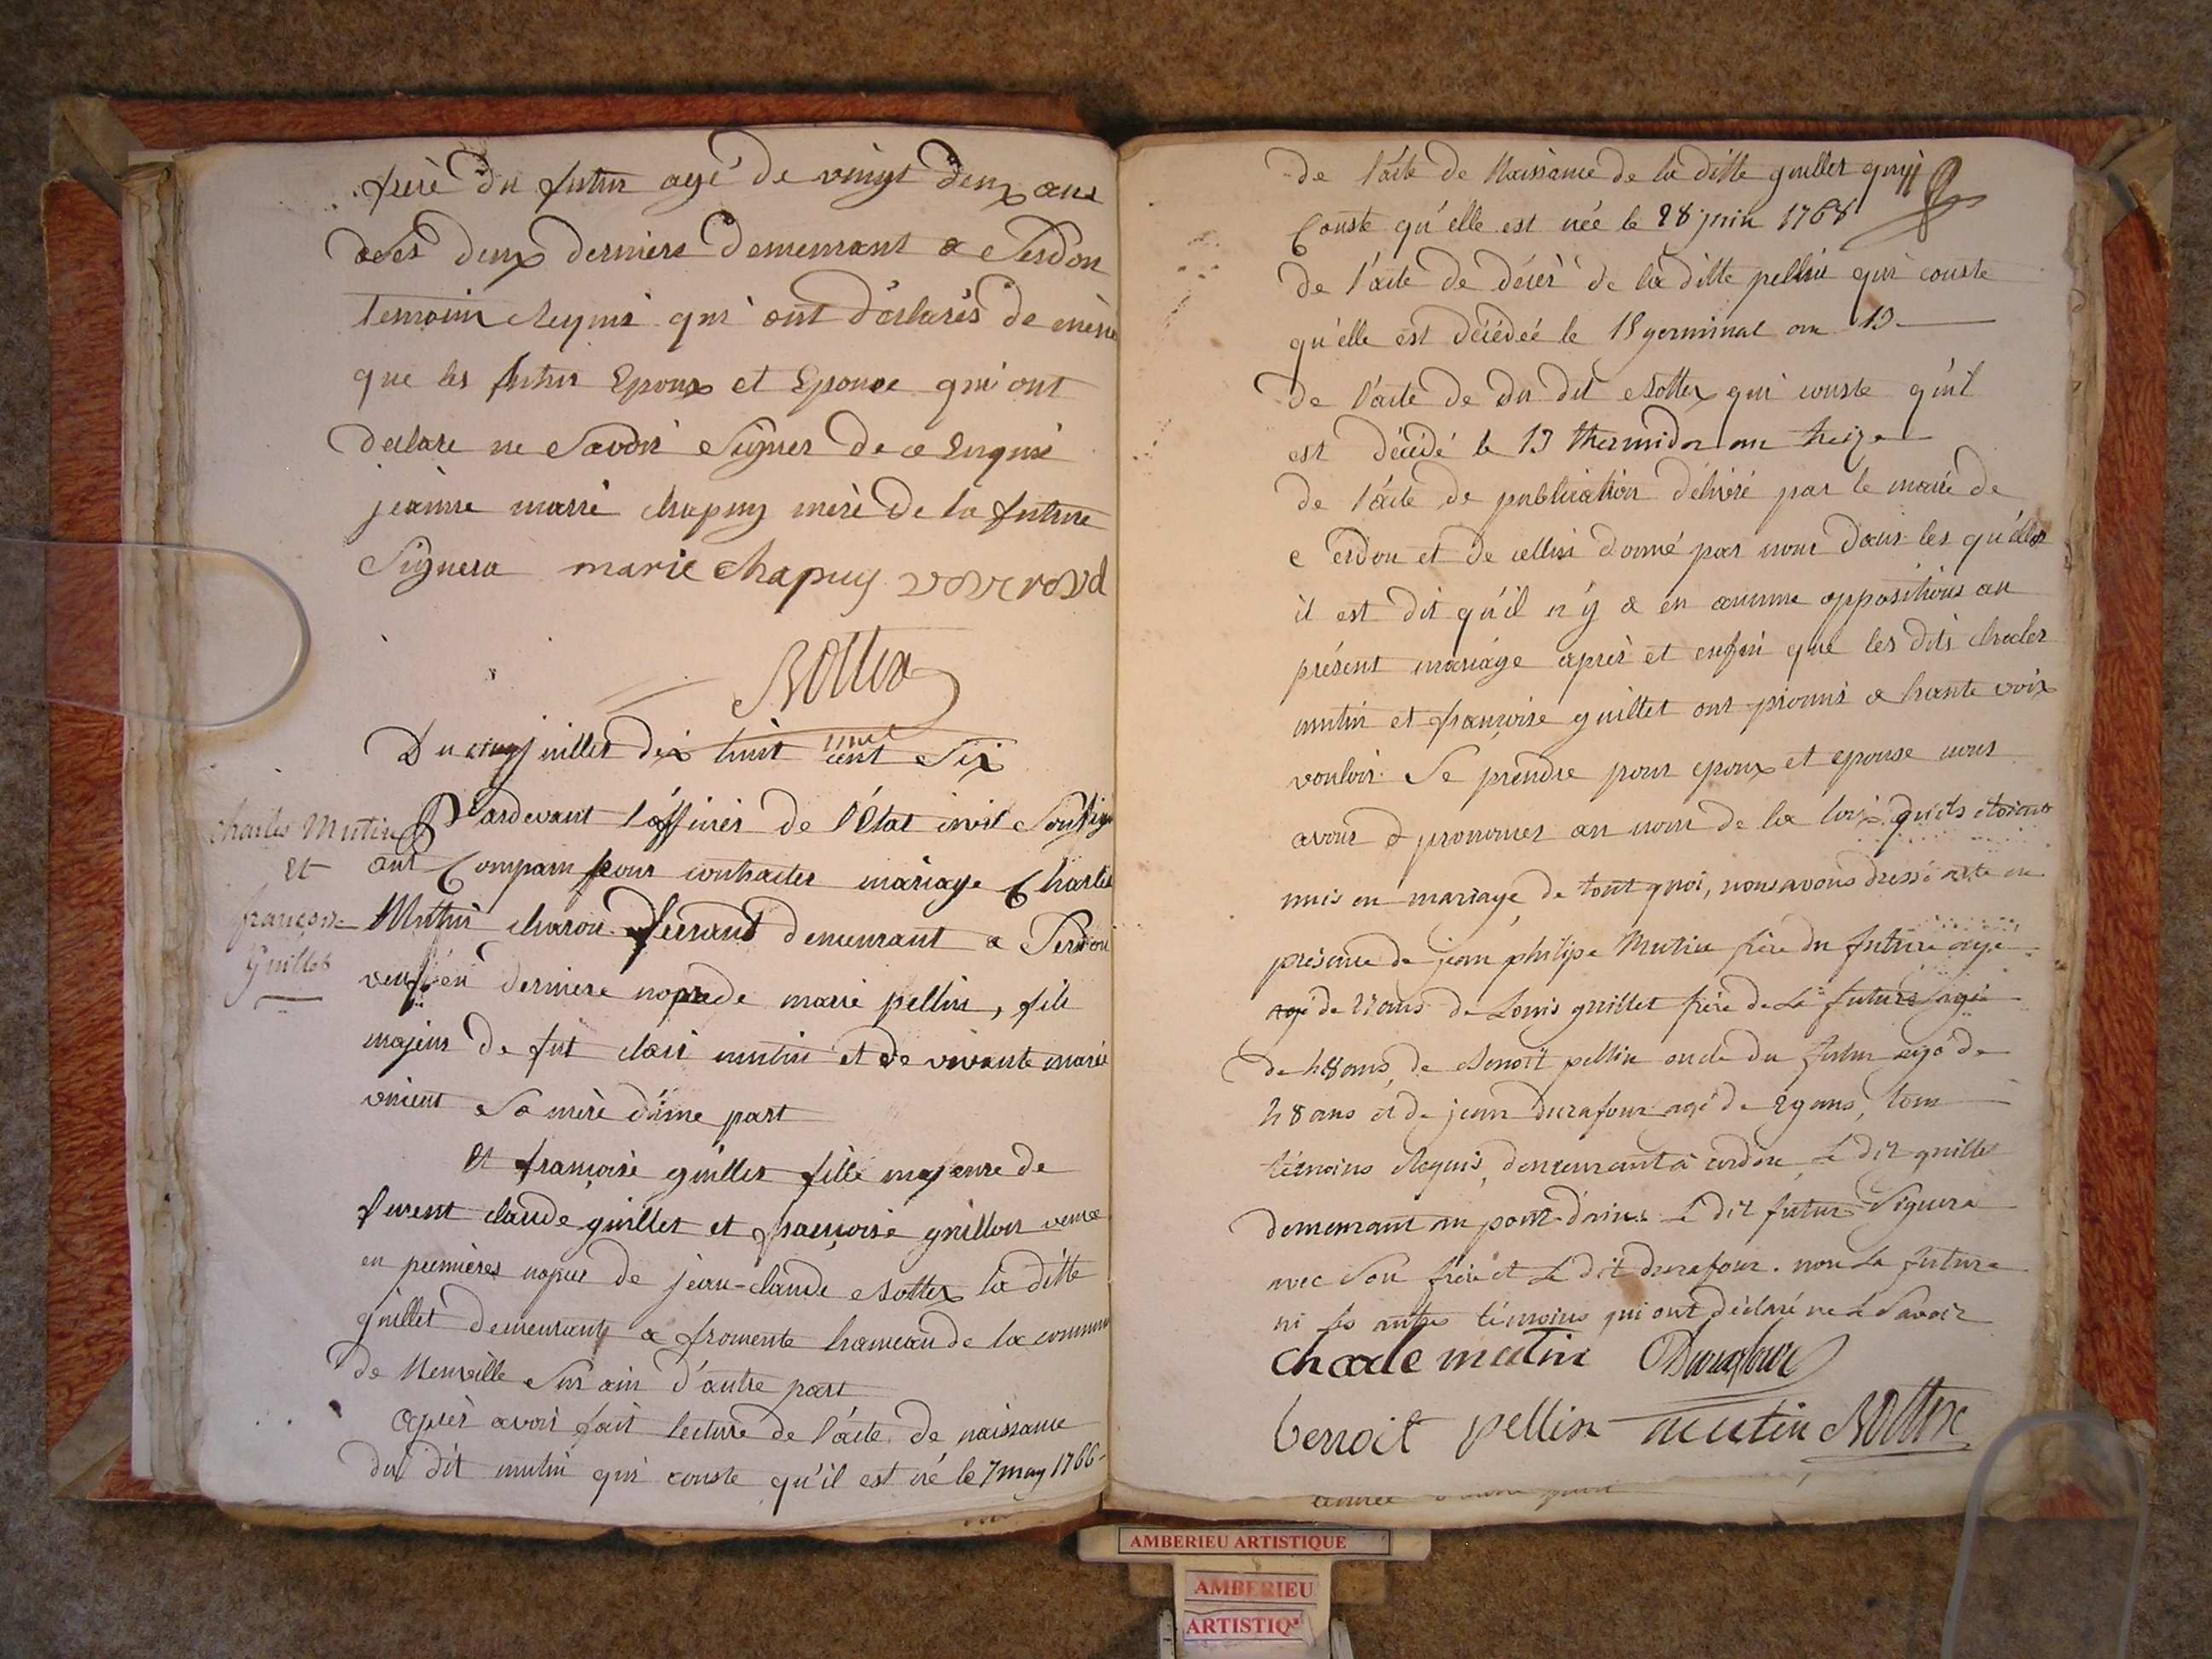 frere du futur agé de vingt deux ans
Les deux derniers demeurant a Serdon
temoin Requis qui ont déclarés de même
que les futur Epoux et Epouse qui ont
declare ne Savoir Signer de ce Enquis
jeanne marie chapuy mere de la future
Signera marie chapuy
Rottex
Du juillet dix huit cent Six
charles Mutin
et
françoise
Guillet
Pardevant l'officier de l'Etat civil Soussigné
ont Comparu pour contracter mariage Charles
Mutin charon demeurant a Serdon
veuf en derniere nopce de marie pellin, fils
majeur de fut clair mutin et de vivante marie
vincent Sa mere d'une part
Et françoise guillet fille majeure de
furent claude guillet et françoise guillon veuve
en premières nopces de jean-claude Rottex la ditte
guillet demeurant a fromente hameau de la commune
de Neuville Sur ain d'autre part
Après avoir fait lecture de l'acte de naissance
du dit mutin qui conste qu'il est né le 7 may 1766
de l'acte de Naissance de la ditte guillet qui
Conste qu'elle est née le 28 juin 1768
de l'acte de décès de la ditte pellin qui conste
qu'elle est décédée le 18 germinal an 13
de l'acte de du dit Rottex qui conste qu'il
est décédé le 13 thermidor an treize
de l'acte de publication délivré par le maire de
Cerdon et de cellui donné par nous dans les quelles
il est dit qu'il n'y a eu aucune oppositions au
présent mariage après et enfin que les dits charles
mutin et françoise guillet ont promis a haute voix
vouloir Se prendre pour epoux et epouse nous
avons prononcer au nom de la loix qu'ils étoient
unis en mariage de tout quoi, nous avons dressé acte en
présence de jean philipe Mutin frère du future agé
agé de ans de Louis guillet frère de La future agé
de 48 ans, de Benoit pellin oncle du futur agé de
48 ans et de jean Durafour agé de 29 ans, tous
témoins Requis, demeurant à cerdon, Le dit guillet
demeurant au pont d'ain. Le dit futur Signera
avec Son frère et Le dit durafour. non La future
ni Les autres témoins qui ont déclaré ne Le Savoir
charle mutin Durafour
benoit pellin mutin Rottex
AMBERIEU ARTISTIQUE
AMBERIEU
ARTISTIQ